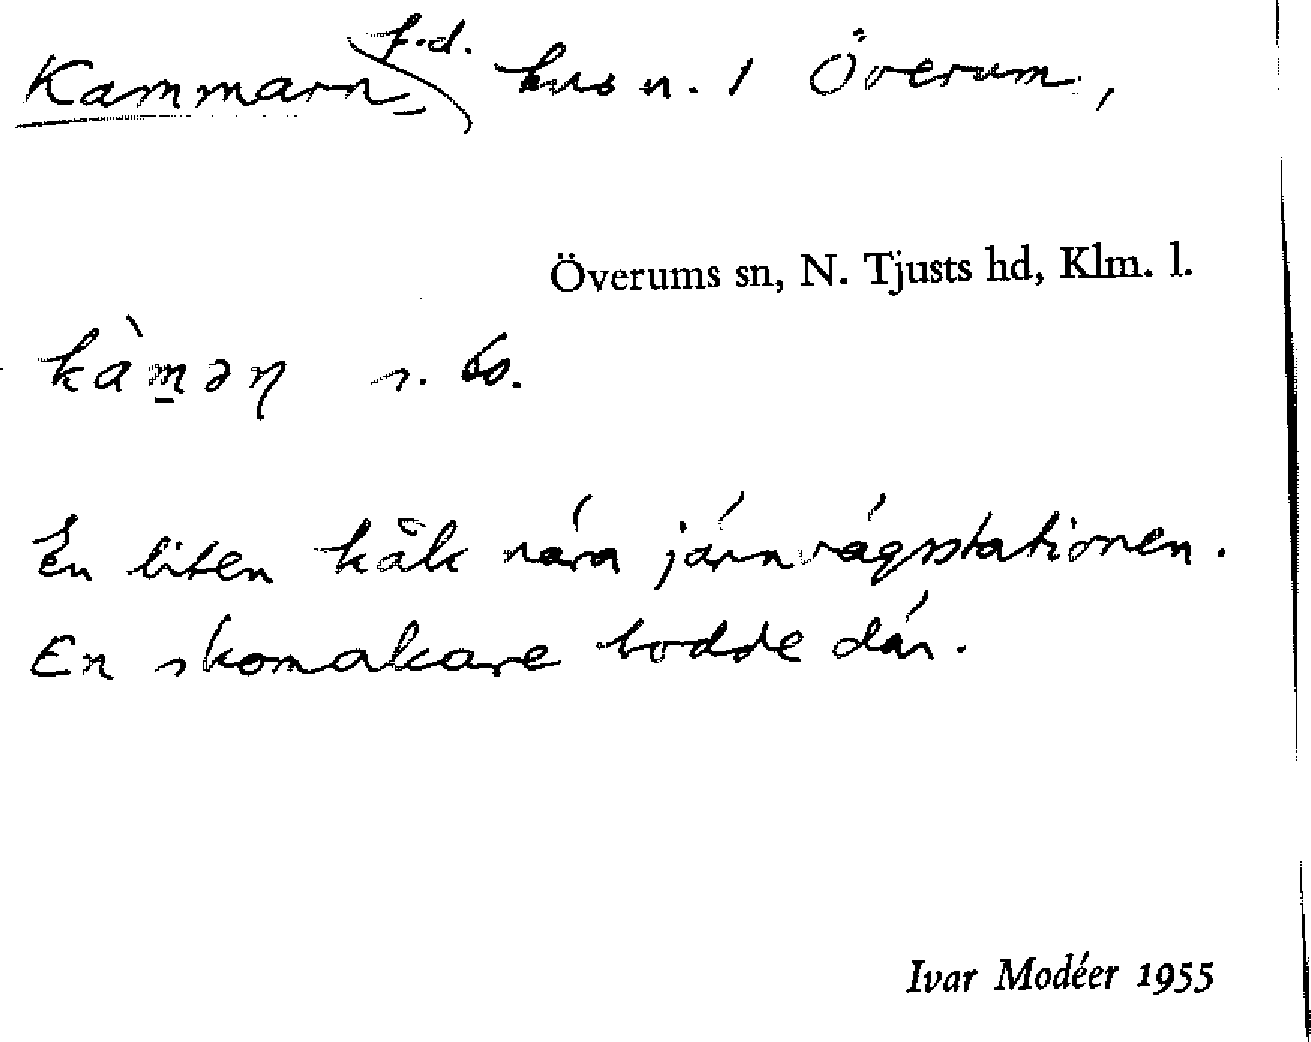 Kammarn, f.d. hus n. 1 Överum,
Överums sn, N. Tjusts hd, Klm. l.
kàm̱əɳ
En liten kåk nära järnvägsstationen.
En skomakare bodde där.
Ivar Modéer 1955